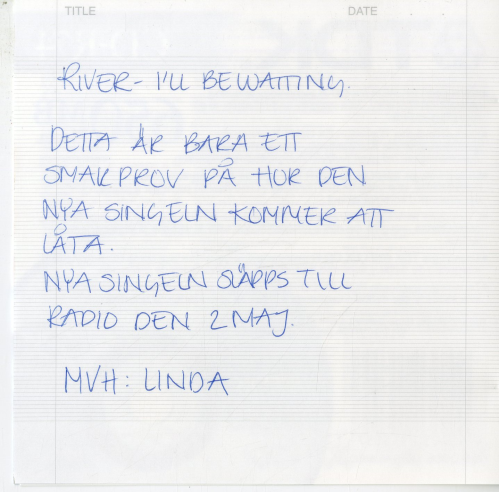 TITLE DATE
RIVER - I'LL BE WAITING.
DETTA ÄR BARA ETT
SMAKPROV PÅ HUR DEN
NYA SINGELN KOMMER ATT
LÅTA.
NYA SINGELN SLÄPPS TILL
RADIO DEN 2 MAJ.
MVH: LINDA